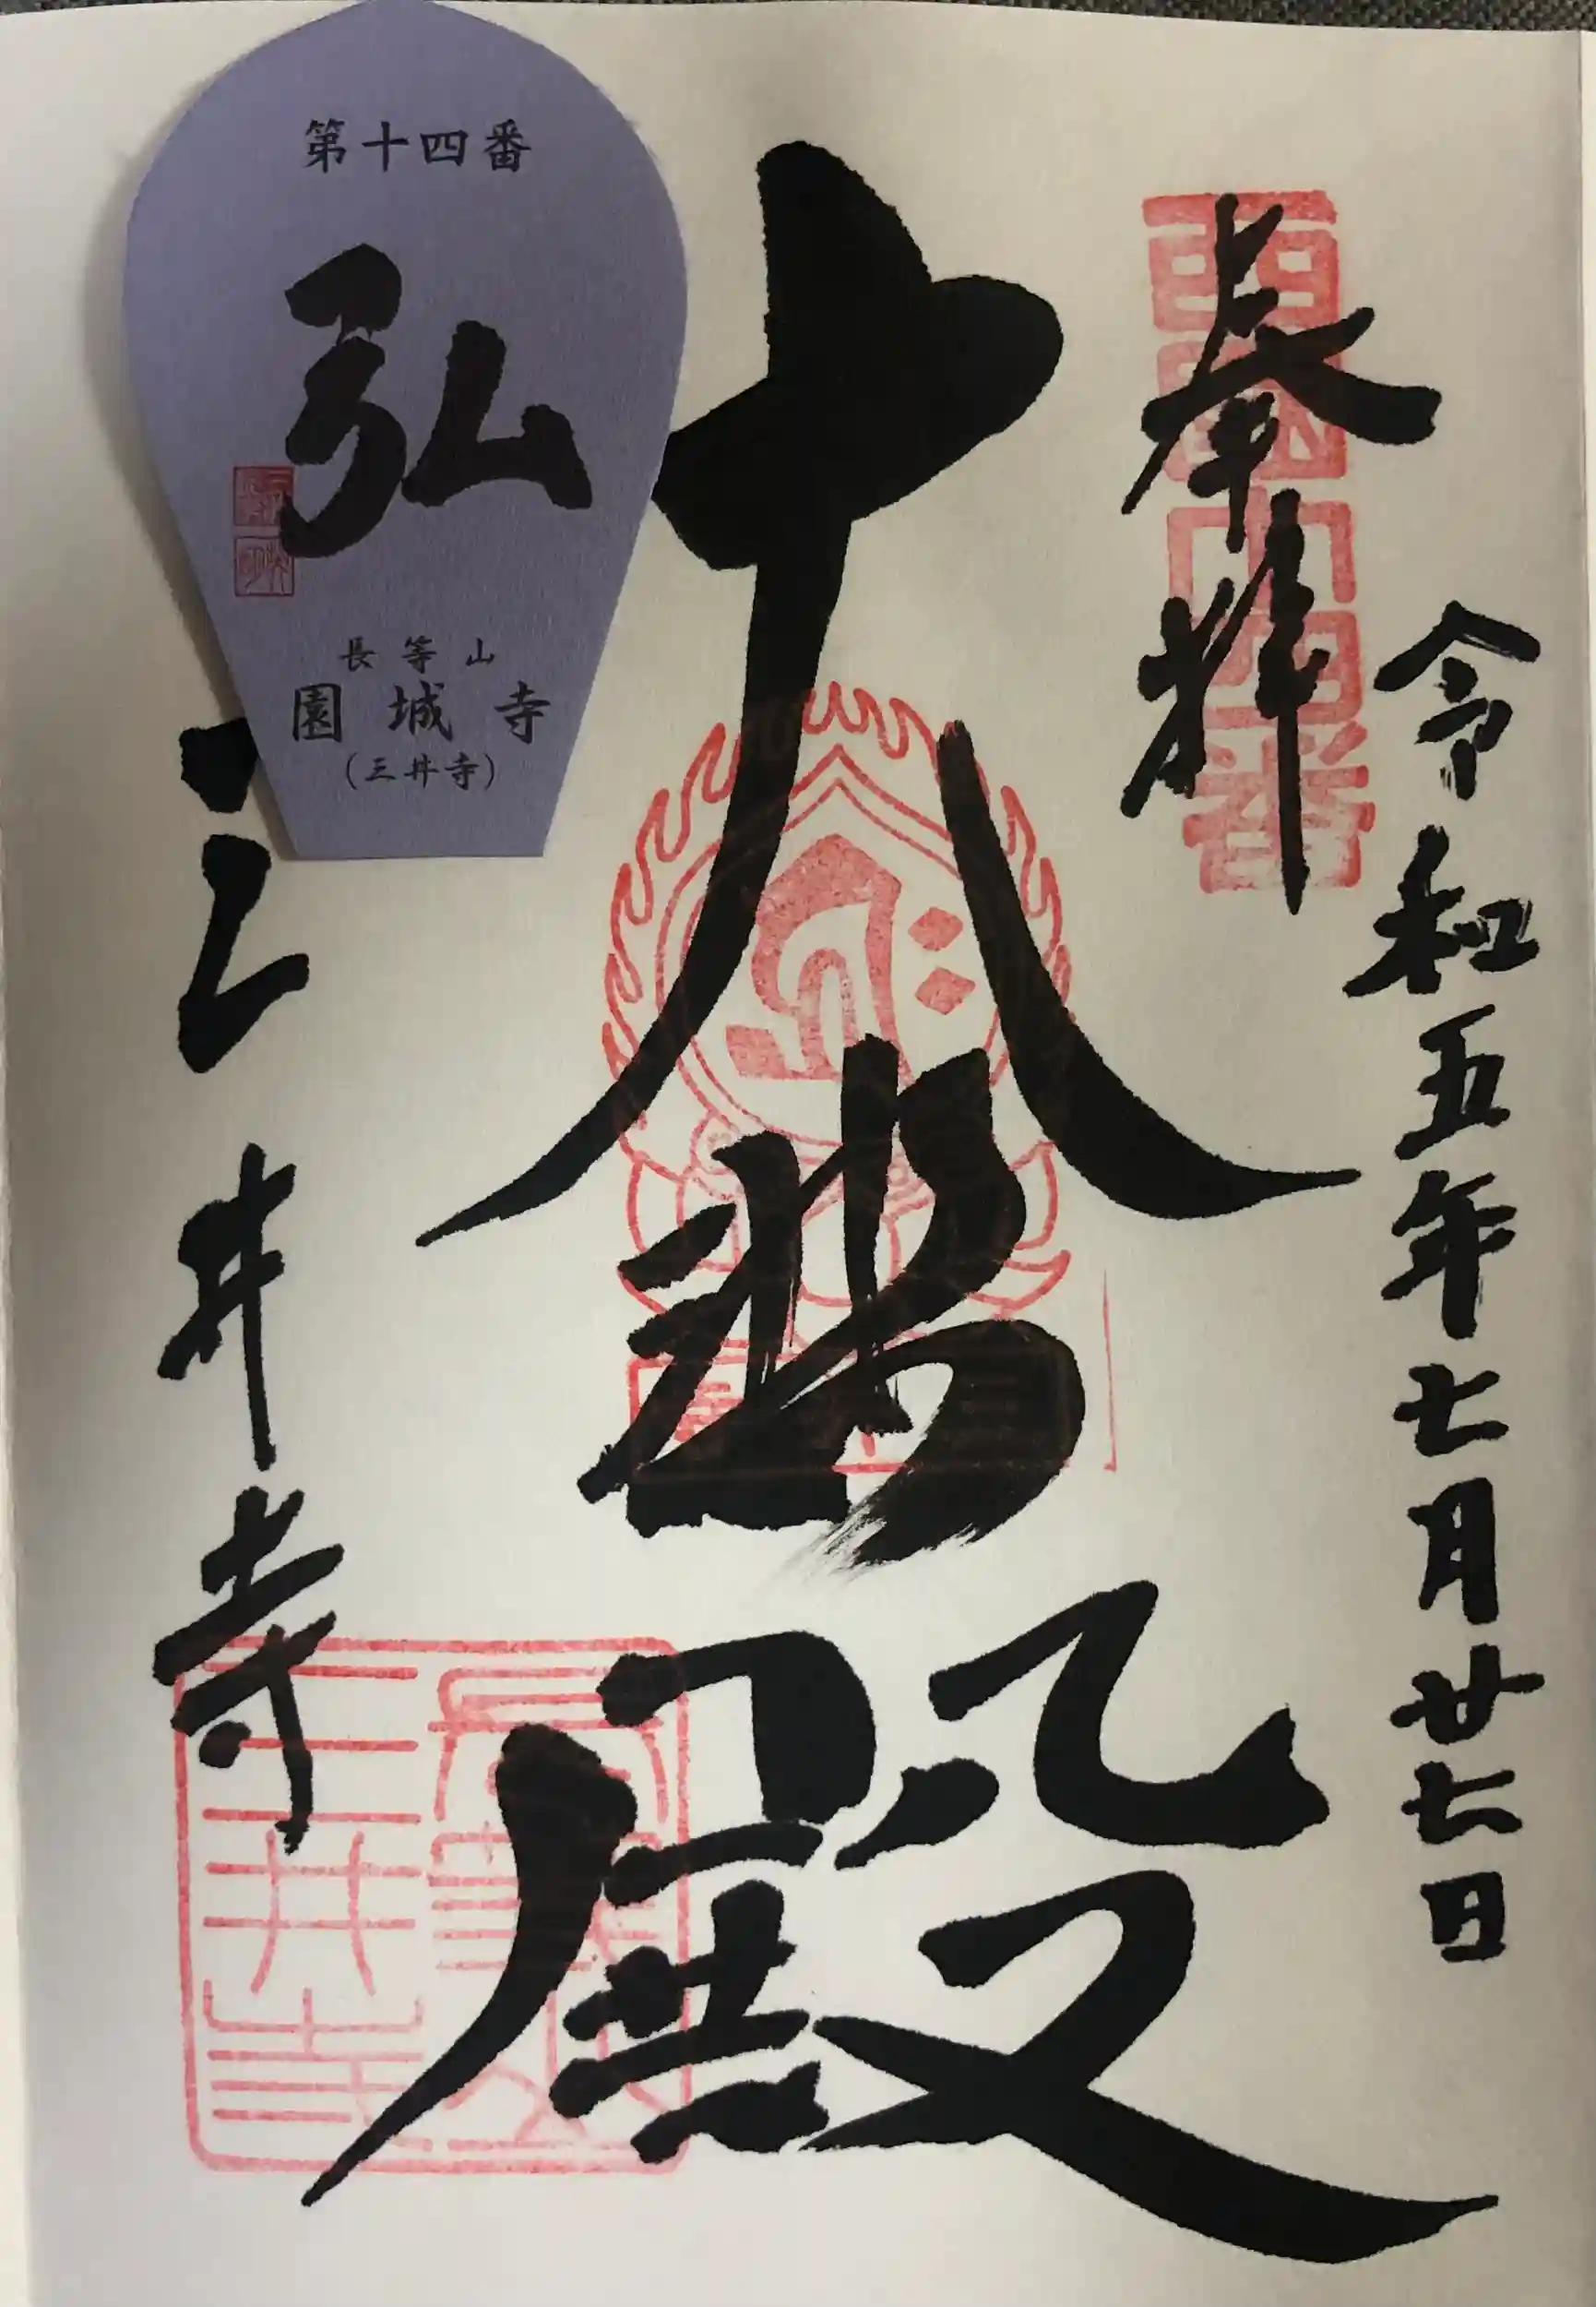 令和五年七月廿七日
奉拝
西國十四番
大悲殿
三井寺
長等山
三井寺
第十四番
弘
長等山
園城寺
(三井寺)